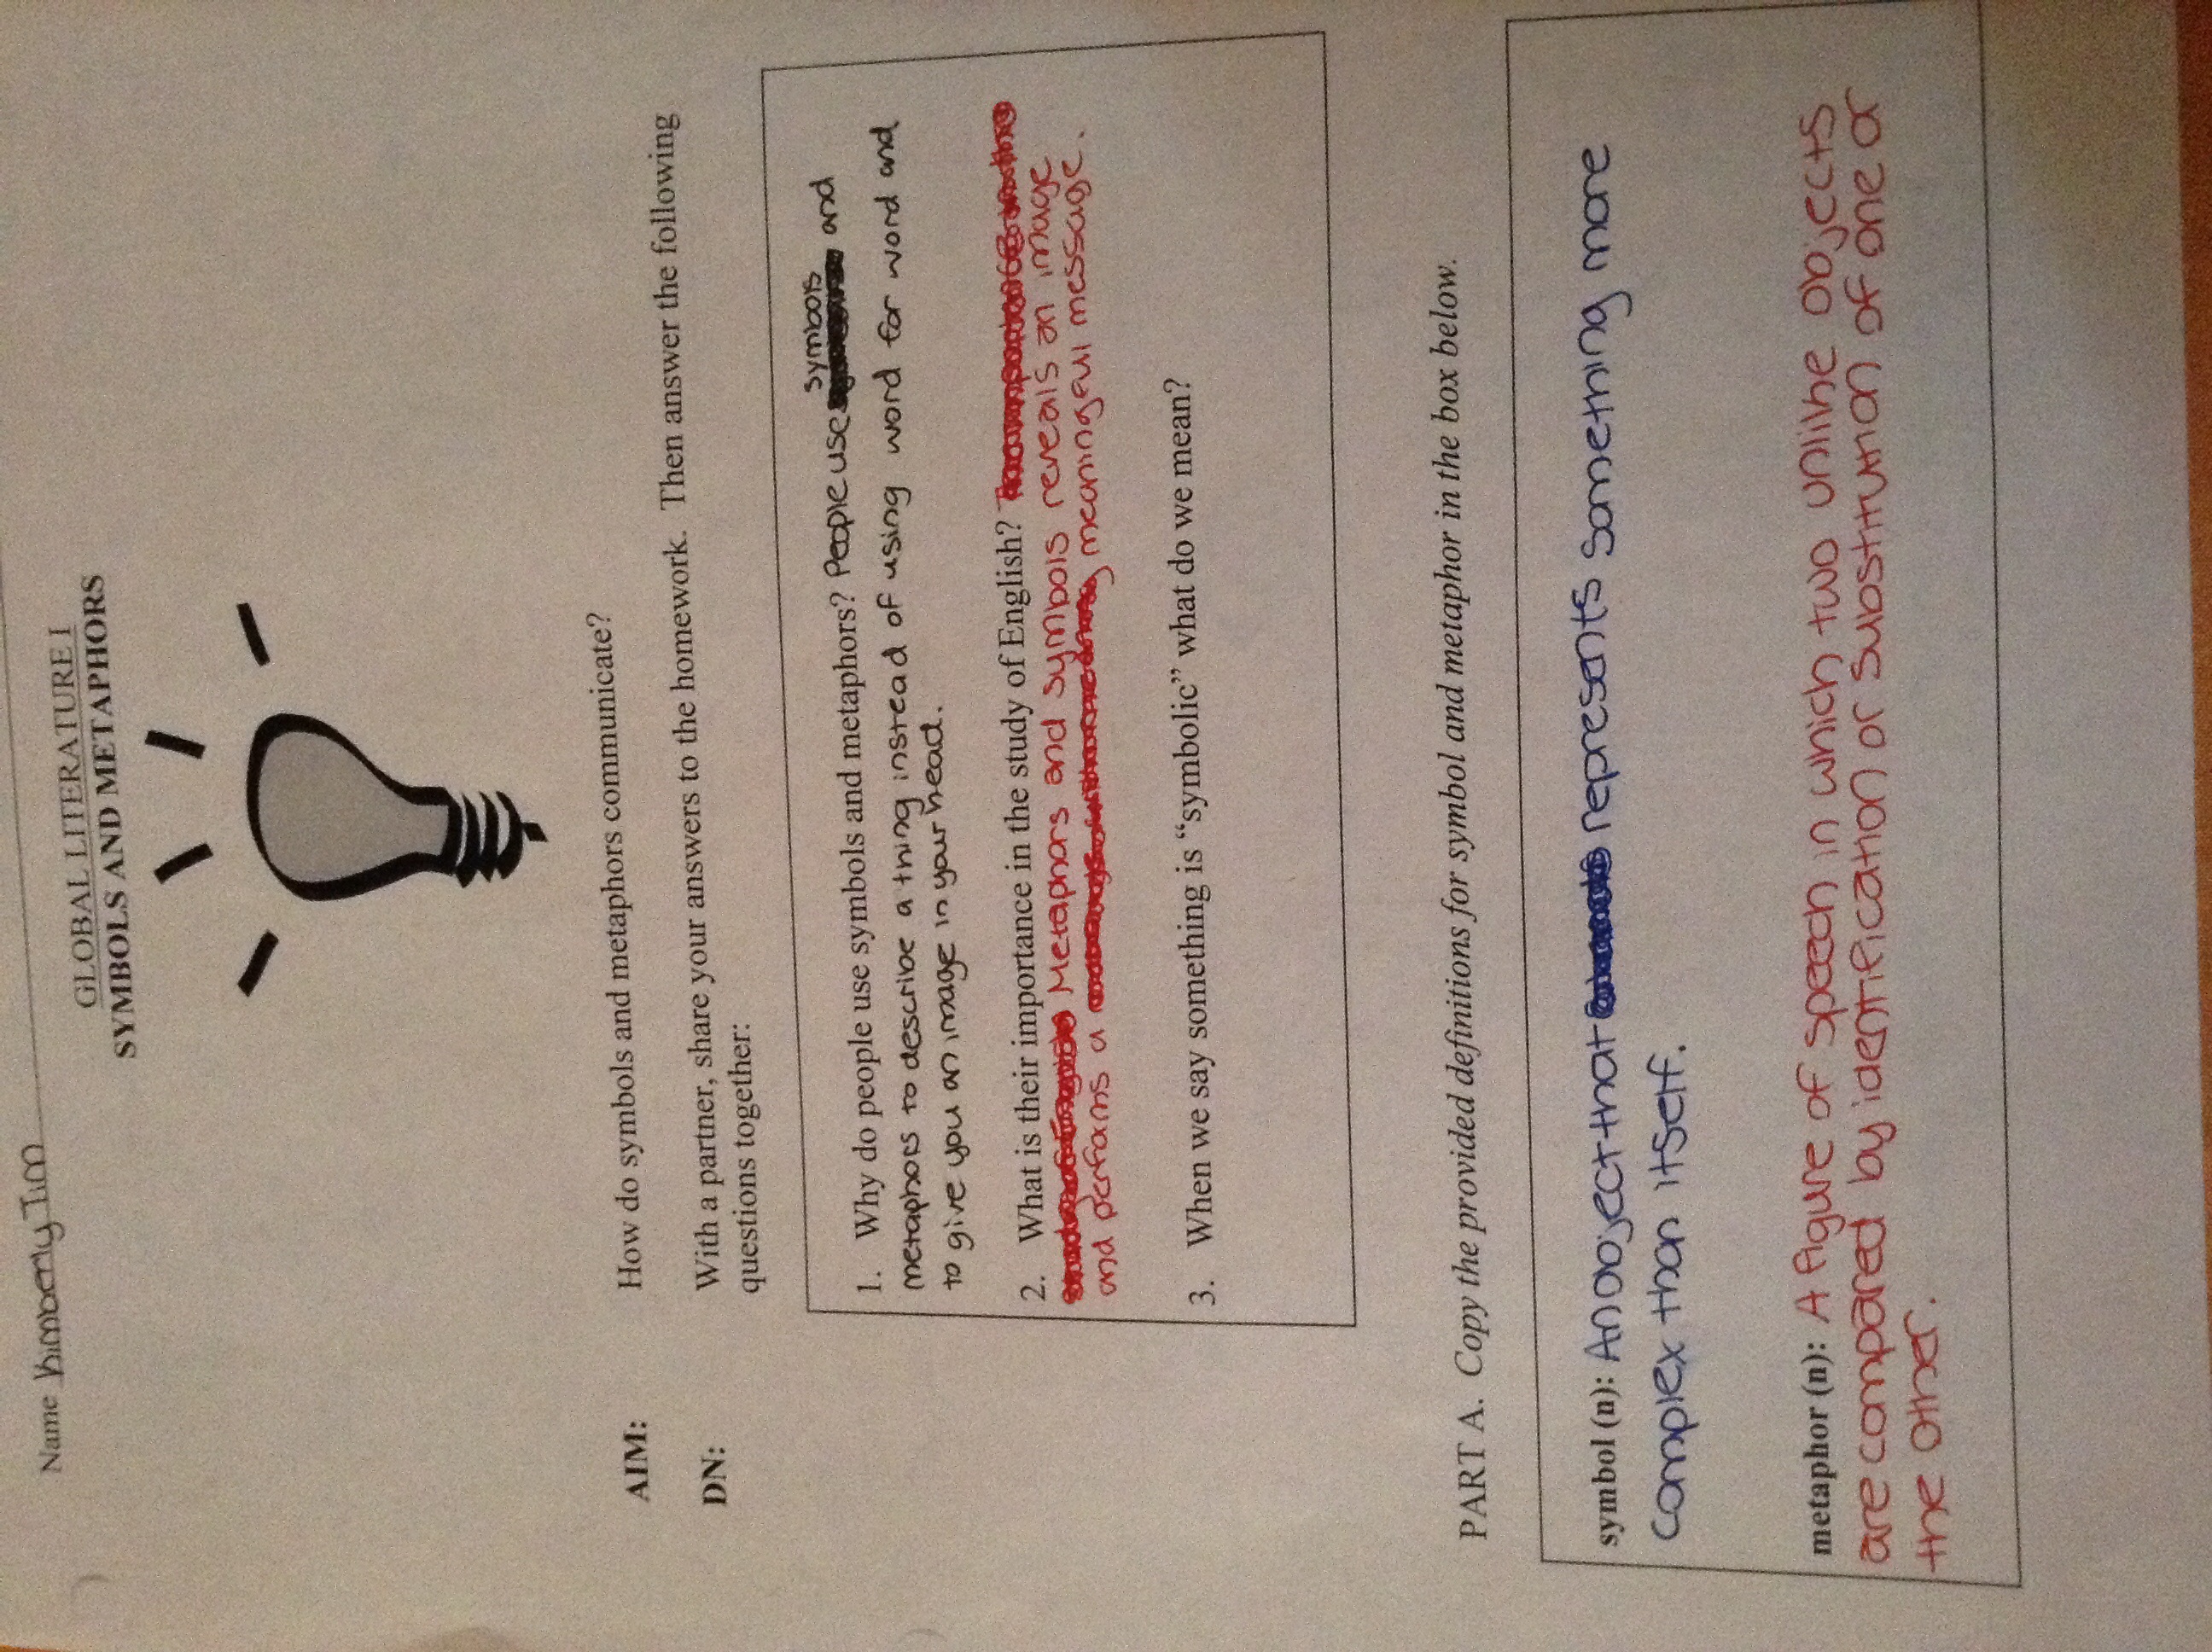 Name Kimberly Tim
GLOBAL LITERATURE I
SYMBOLS AND METAPHORS
AIM: How do symbols and metaphors communicate?
DN: With a partner, share your answers to the homework. Then answer the following
questions together:
symbols
1. Why do people use symbols and metaphors? People use and
metaphors to describe a thing instead of using word for word and
to give you an image in your head.
2. What is their importance in the study of English?
Metaphors and symbols reveals an image
and performs a meaningfull message.
3. When we say something is “symbolic” what do we mean?
PART A. Copy the provided definitions for symbol and metaphor in the box below.
symbol (n): An object that represents something more
complex than itself.
metaphor (n): A figure of speech in which two unlike objects
are compared by identification or substitution of one or
the other.